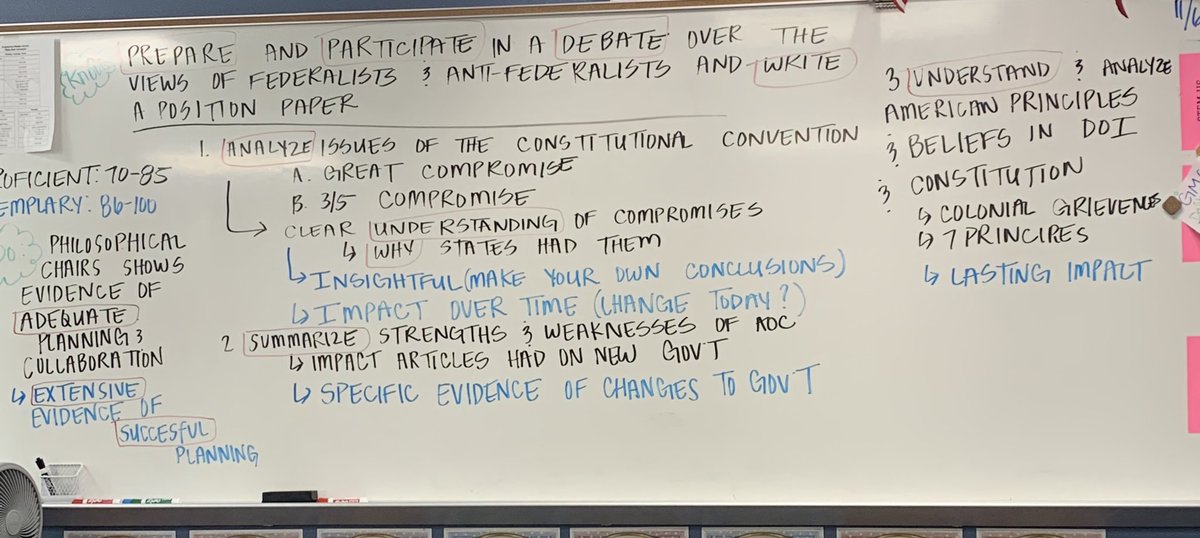 PREPARE AND PARTICIPATE IN A DEBATE OVER THE
VIEWS OF FEDERALISTS & ANTI-FEDERALISTS AND WRITE
A POSITION PAPER
1. ANALYZE ISSUES OF THE CONSTITUTIONAL CONVENTION
A. GREAT COMPROMISE
B. 3/5 COMPROMISE
CLEAR UNDERSTANDING OF COMPROMISES
↳ WHY STATES HAD THEM
↳ INSIGHTFUL (MAKE YOUR OWN CONCLUSIONS)
↳ IMPACT OVER TIME (CHANGE TODAY?)
2 SUMMARIZE STRENGTHS & WEAKNESSES OF AOC
↳ IMPACT ARTICLES HAD ON NEW GOV'T
↳ SPECIFIC EVIDENCE OF CHANGES TO GOV'T
OFICIENT: 70-85
EMPLARY: 86-100
PHILOSOPHICAL
CHAIRS SHOWS
EVIDENCE OF
ADEQUATE
PLANNING &
COLLABORATION
↳ EXTENSIVE
EVIDENCE OF
SUCCESFUL
PLANNING
3 UNDERSTAND & ANALYZE
AMERICAN PRINCIPLES
& BELIEFS IN DOI
& CONSTITUTION
↳ COLONIAL
↳ 7
↳ LASTING IMPACT